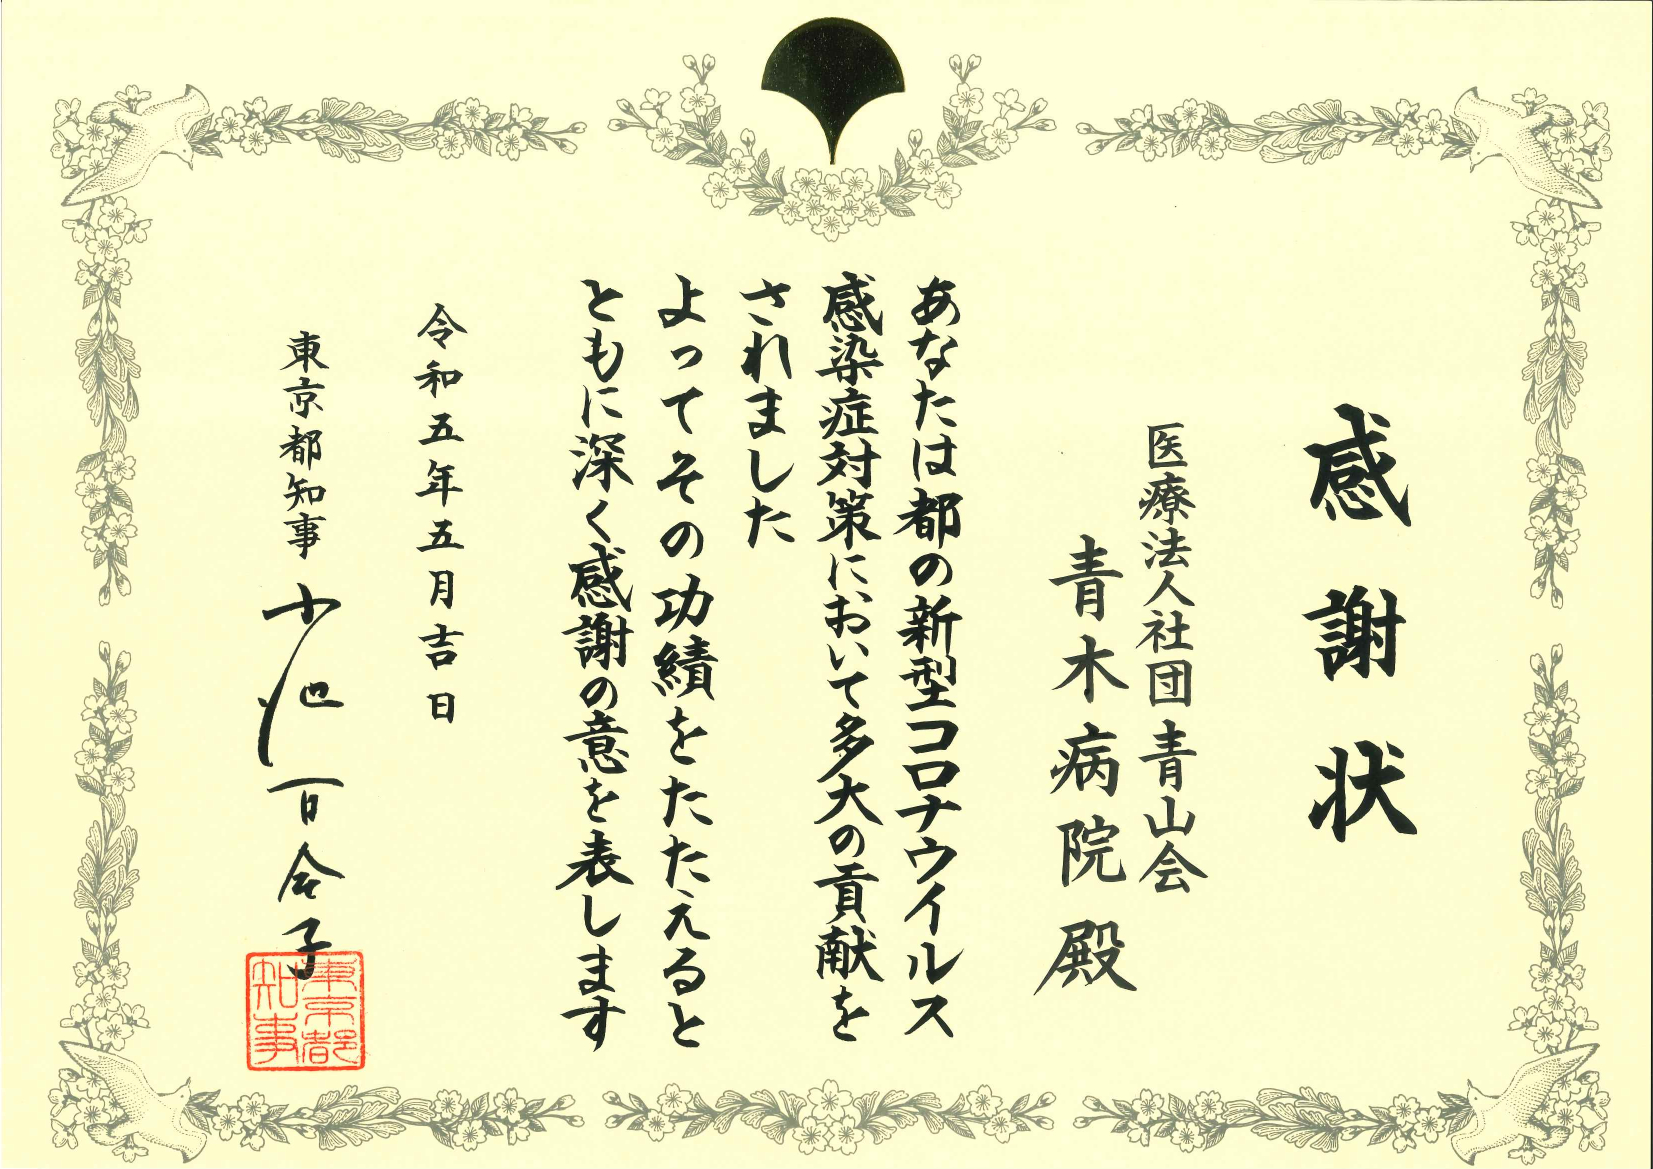 感謝状
医療法人社団青山会
青木病院殿
あなたは都の新型コロナウイルス
感染症対策において多大の貢献を
されました
よってその功績をたたえると
ともに深く感謝の意を表します
令和五年五月吉日
東京都知事 小池百合子
東京都
知事